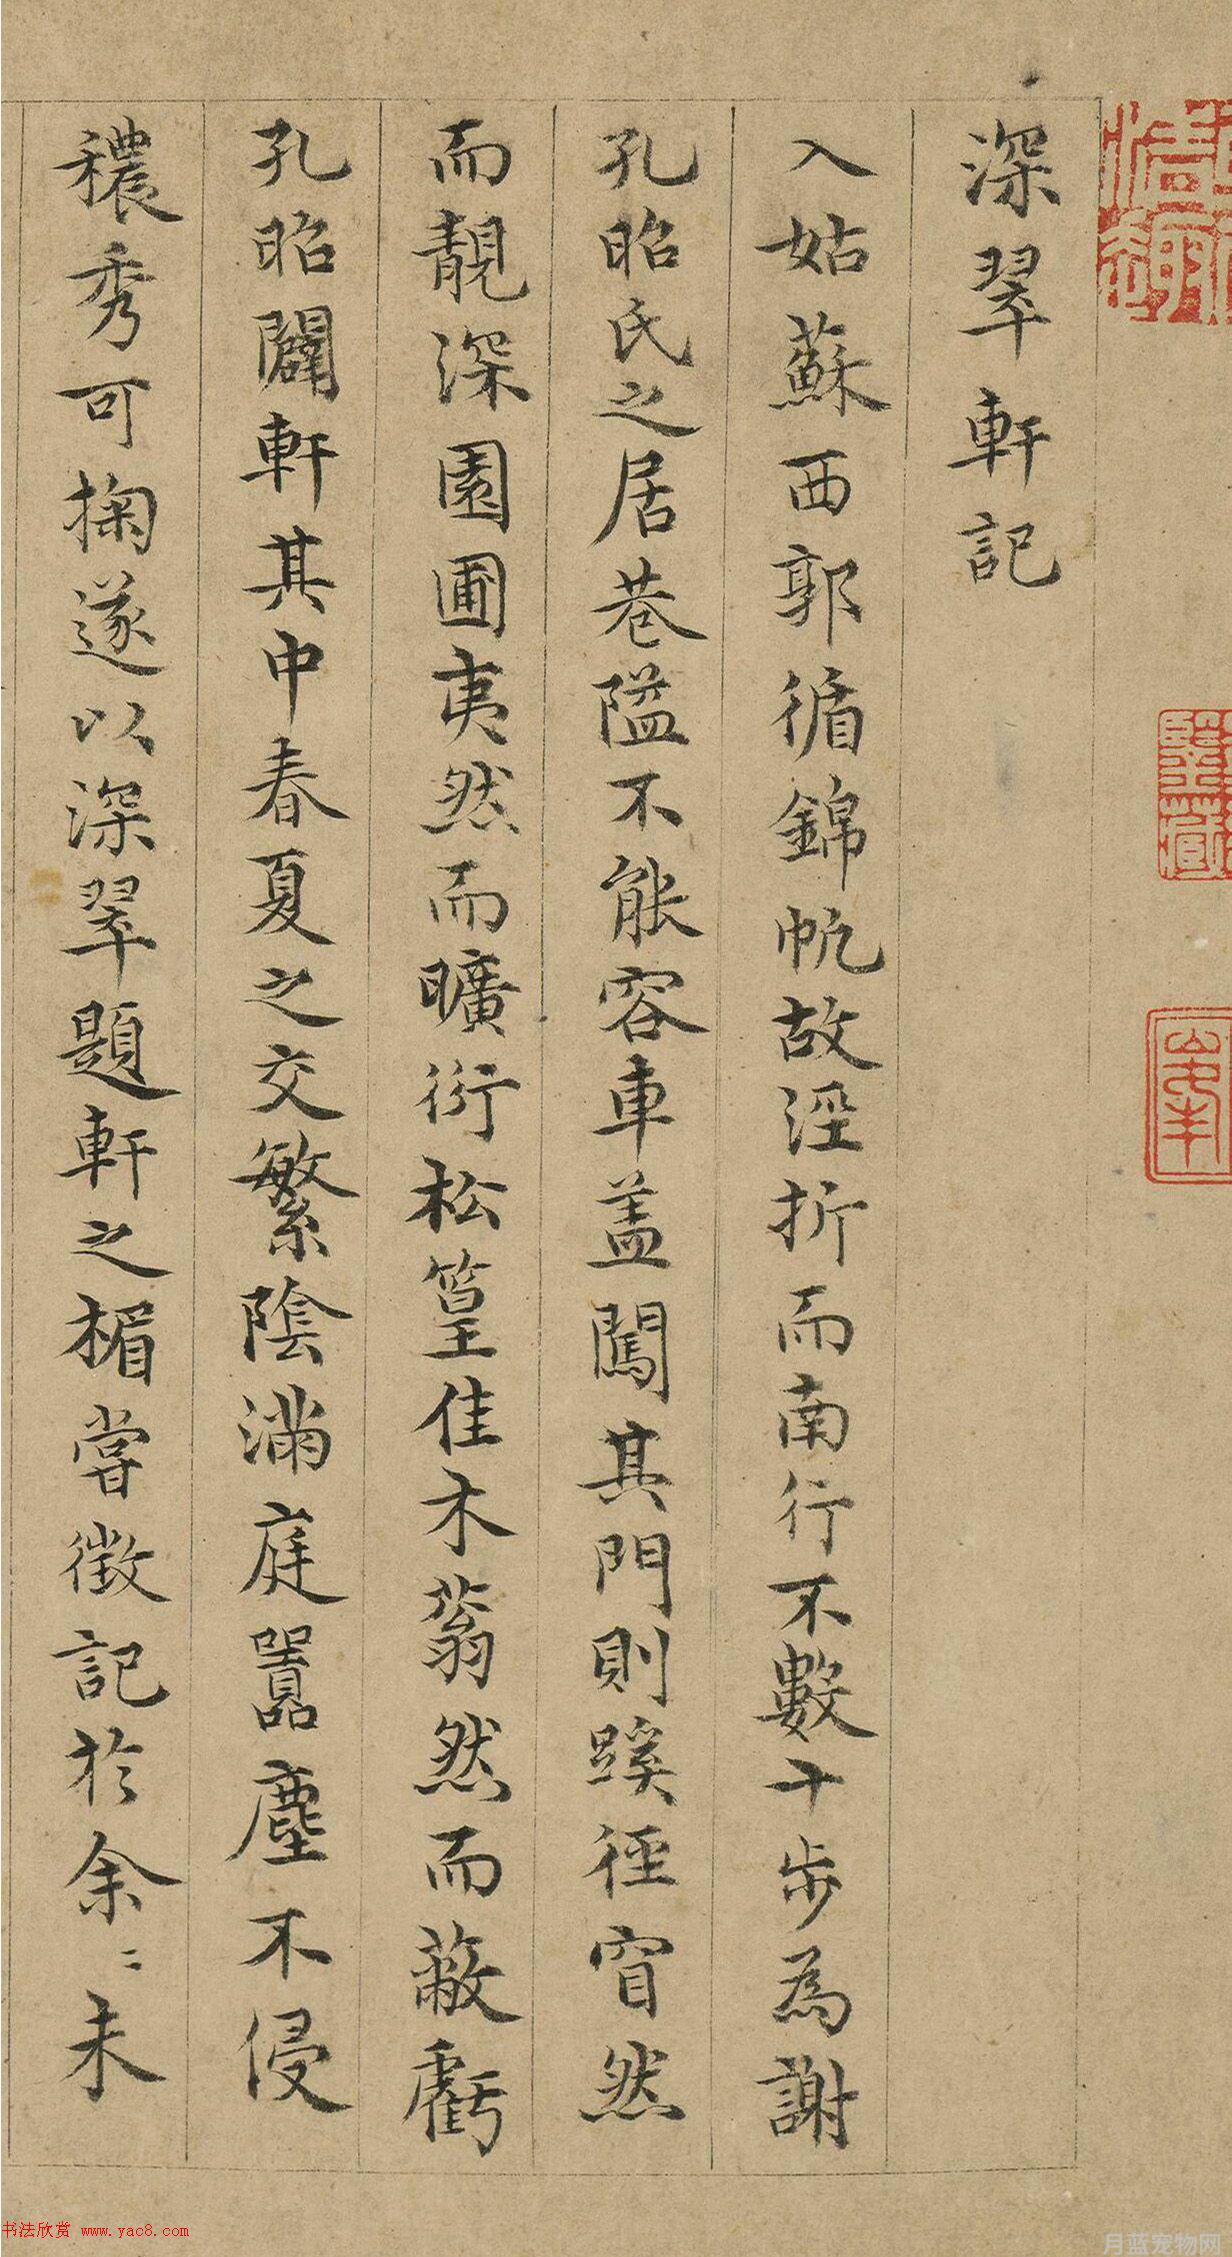 深翠軒記
入姑蘇西郭循錦帆故涇折而南行不數十步為謝
孔昭氏之居巷隘不能容車蓋闖其門則蹊徑窅然
而靚深園圃夷然而曠衍松篁佳木蓊然而蔽虧
孔昭闢軒其中春夏之交繁陰滿庭囂塵不侵
穠秀可掬遂以深翠題軒之楣嘗徵記於余〻未
书法欣赏 www.yac8.com
月蓝宠物网